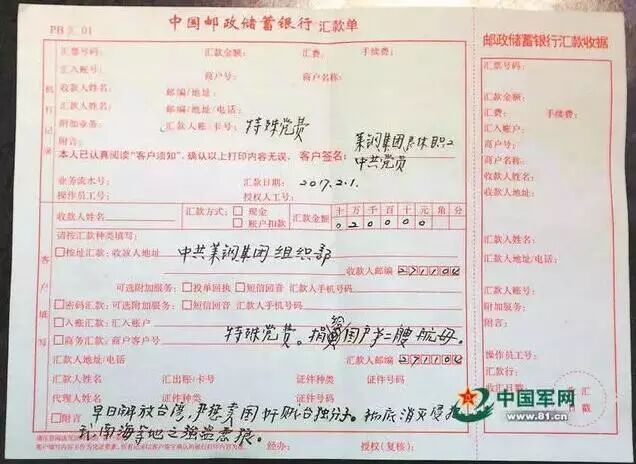 PB 01
中国邮政储蓄银行 汇款单
汇票号码： 汇款金额： 汇费： 手续费：
汇入账号： 商户号： 商户名称：
收款人姓名： 邮编/地址：
汇款人姓名： 邮编/地址/电话：
附加业务： 汇款人账/卡号： 特殊党费
附言： 莱钢集团退休职工
本人已认真阅读“客户须知”，确认以上打印内容无误， 客户签名： 中共党员
业务流水号： 汇款日期： 2017.2.1.
操作员工号： 授权人工号：
机打记录
收款人姓名 汇款方式： 现金 账户扣款 汇款金额 十万千百十元角分
020000
请按汇款种类填写：
按址汇款：收款人地址 中共莱钢集团组织部
收款人邮编 271104
可选附加服务： 投单回执 短信回音 汇款人手机号码
密码汇款 可选附加服务： 短信回音 汇款人手机号码
入账汇款：汇入账户
商务汇款：商户客户号 特殊党费。捐给国产第二艘航母。
汇款人地址/电话 汇款人邮编 271104
汇款人姓名 汇出账/卡号 证件种类 证件号码
代理人姓名 证件种类 证件号码
附言 早日解放台湾，严惩美国 台独分子。彻底消灭侵
南海等地之强盗恶狼。
经办： 授权（复核）：
客户填写
邮政储蓄银行汇款收据
汇票号码：
汇款金额：
汇费： 手续费：
汇入账户：
商户号：
商户名称：
收款人姓名：
收款人地址：
汇款人姓名：
汇款人地址：
汇款人账号：
附加服务：
附言：
操作员工号：
汇款行：
收汇日期：
汇
戳
中国军网
www.81.cn